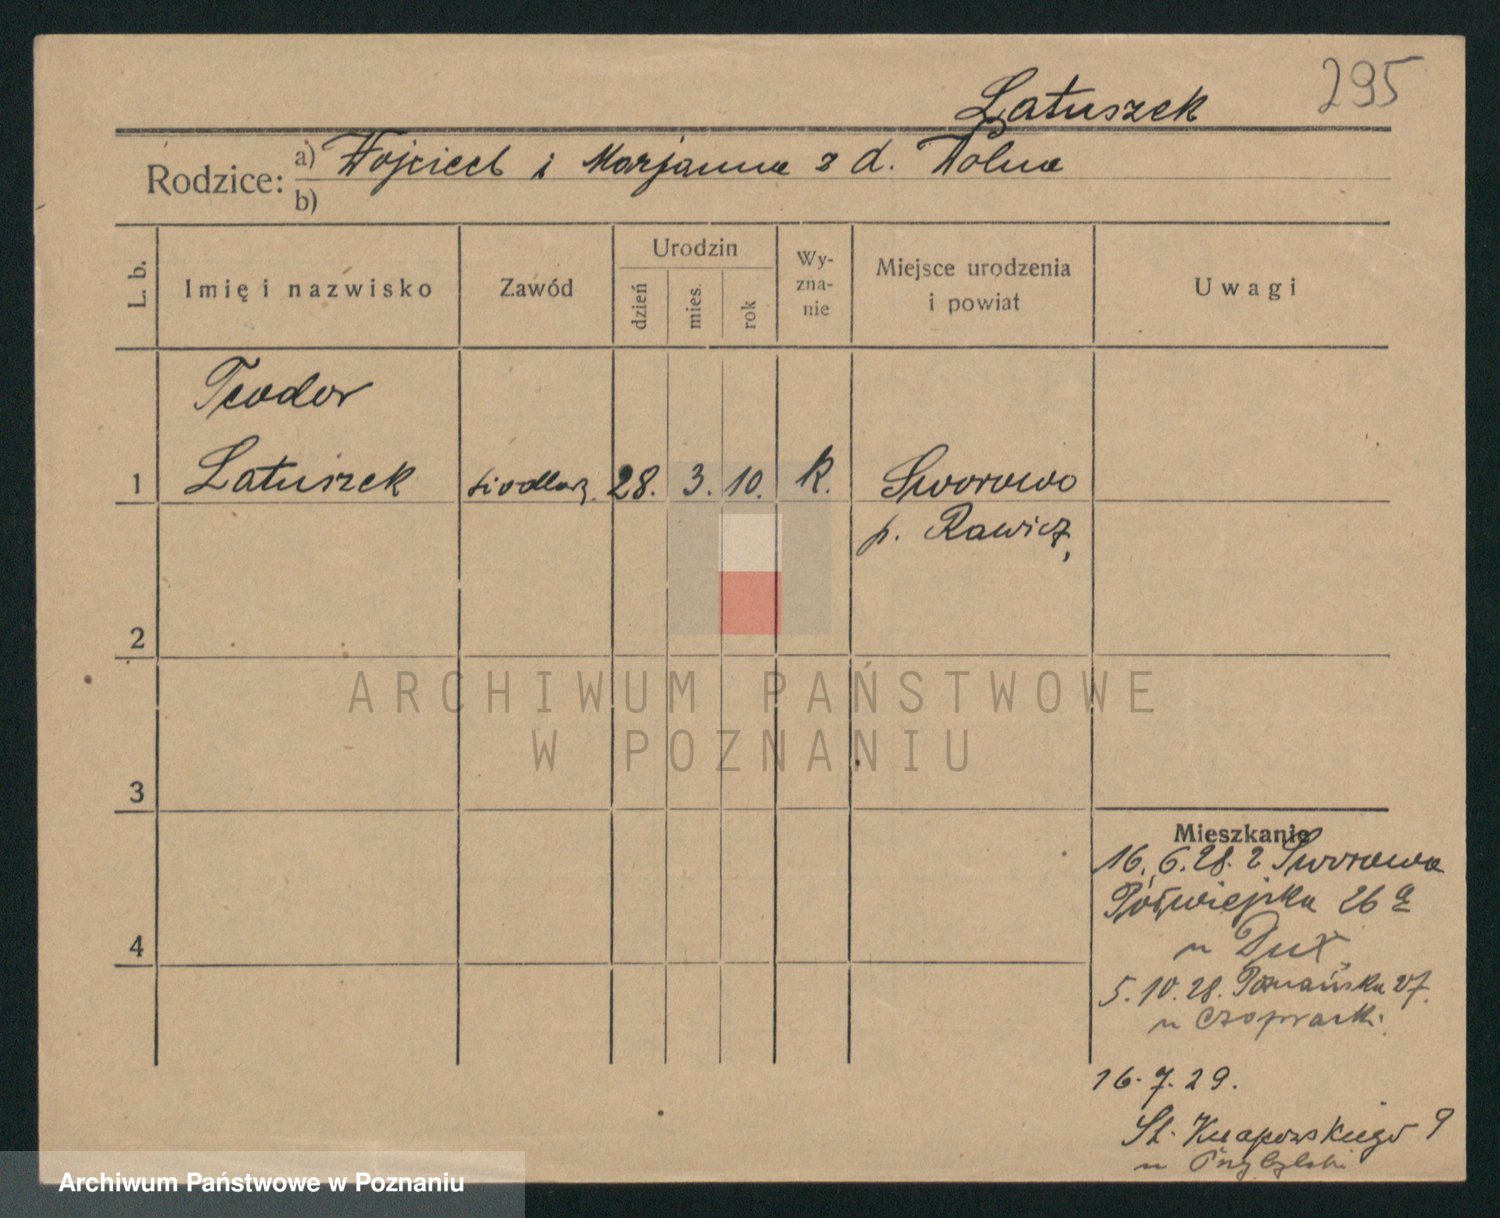 295
Latuszek
Rodzice: a) Wojciech i Marjanna z d. Wolna
b)
L. b.
Imię i nazwisko
Zawód
Urodzin
dzień
mies.
rok
Wy-
zna-
nie
Miejsce urodzenia
i powiat
Uwagi
Teodor
1 Latuszek siodlarz. 28. 3. 10. k. Sworowo
p. Rawicz,
2
3
4
ARCHIWUM PAŃSTWOWE
W POZNANIU
Mieszkanie
16.6.28. z Sworowa
Półwiejska 26 a
u Dux
5.10.28. Poznańska 27.
u
16.7.29.
St. Knapowskiego 9
u Przybylski
Archiwum Państwowe w Poznaniu